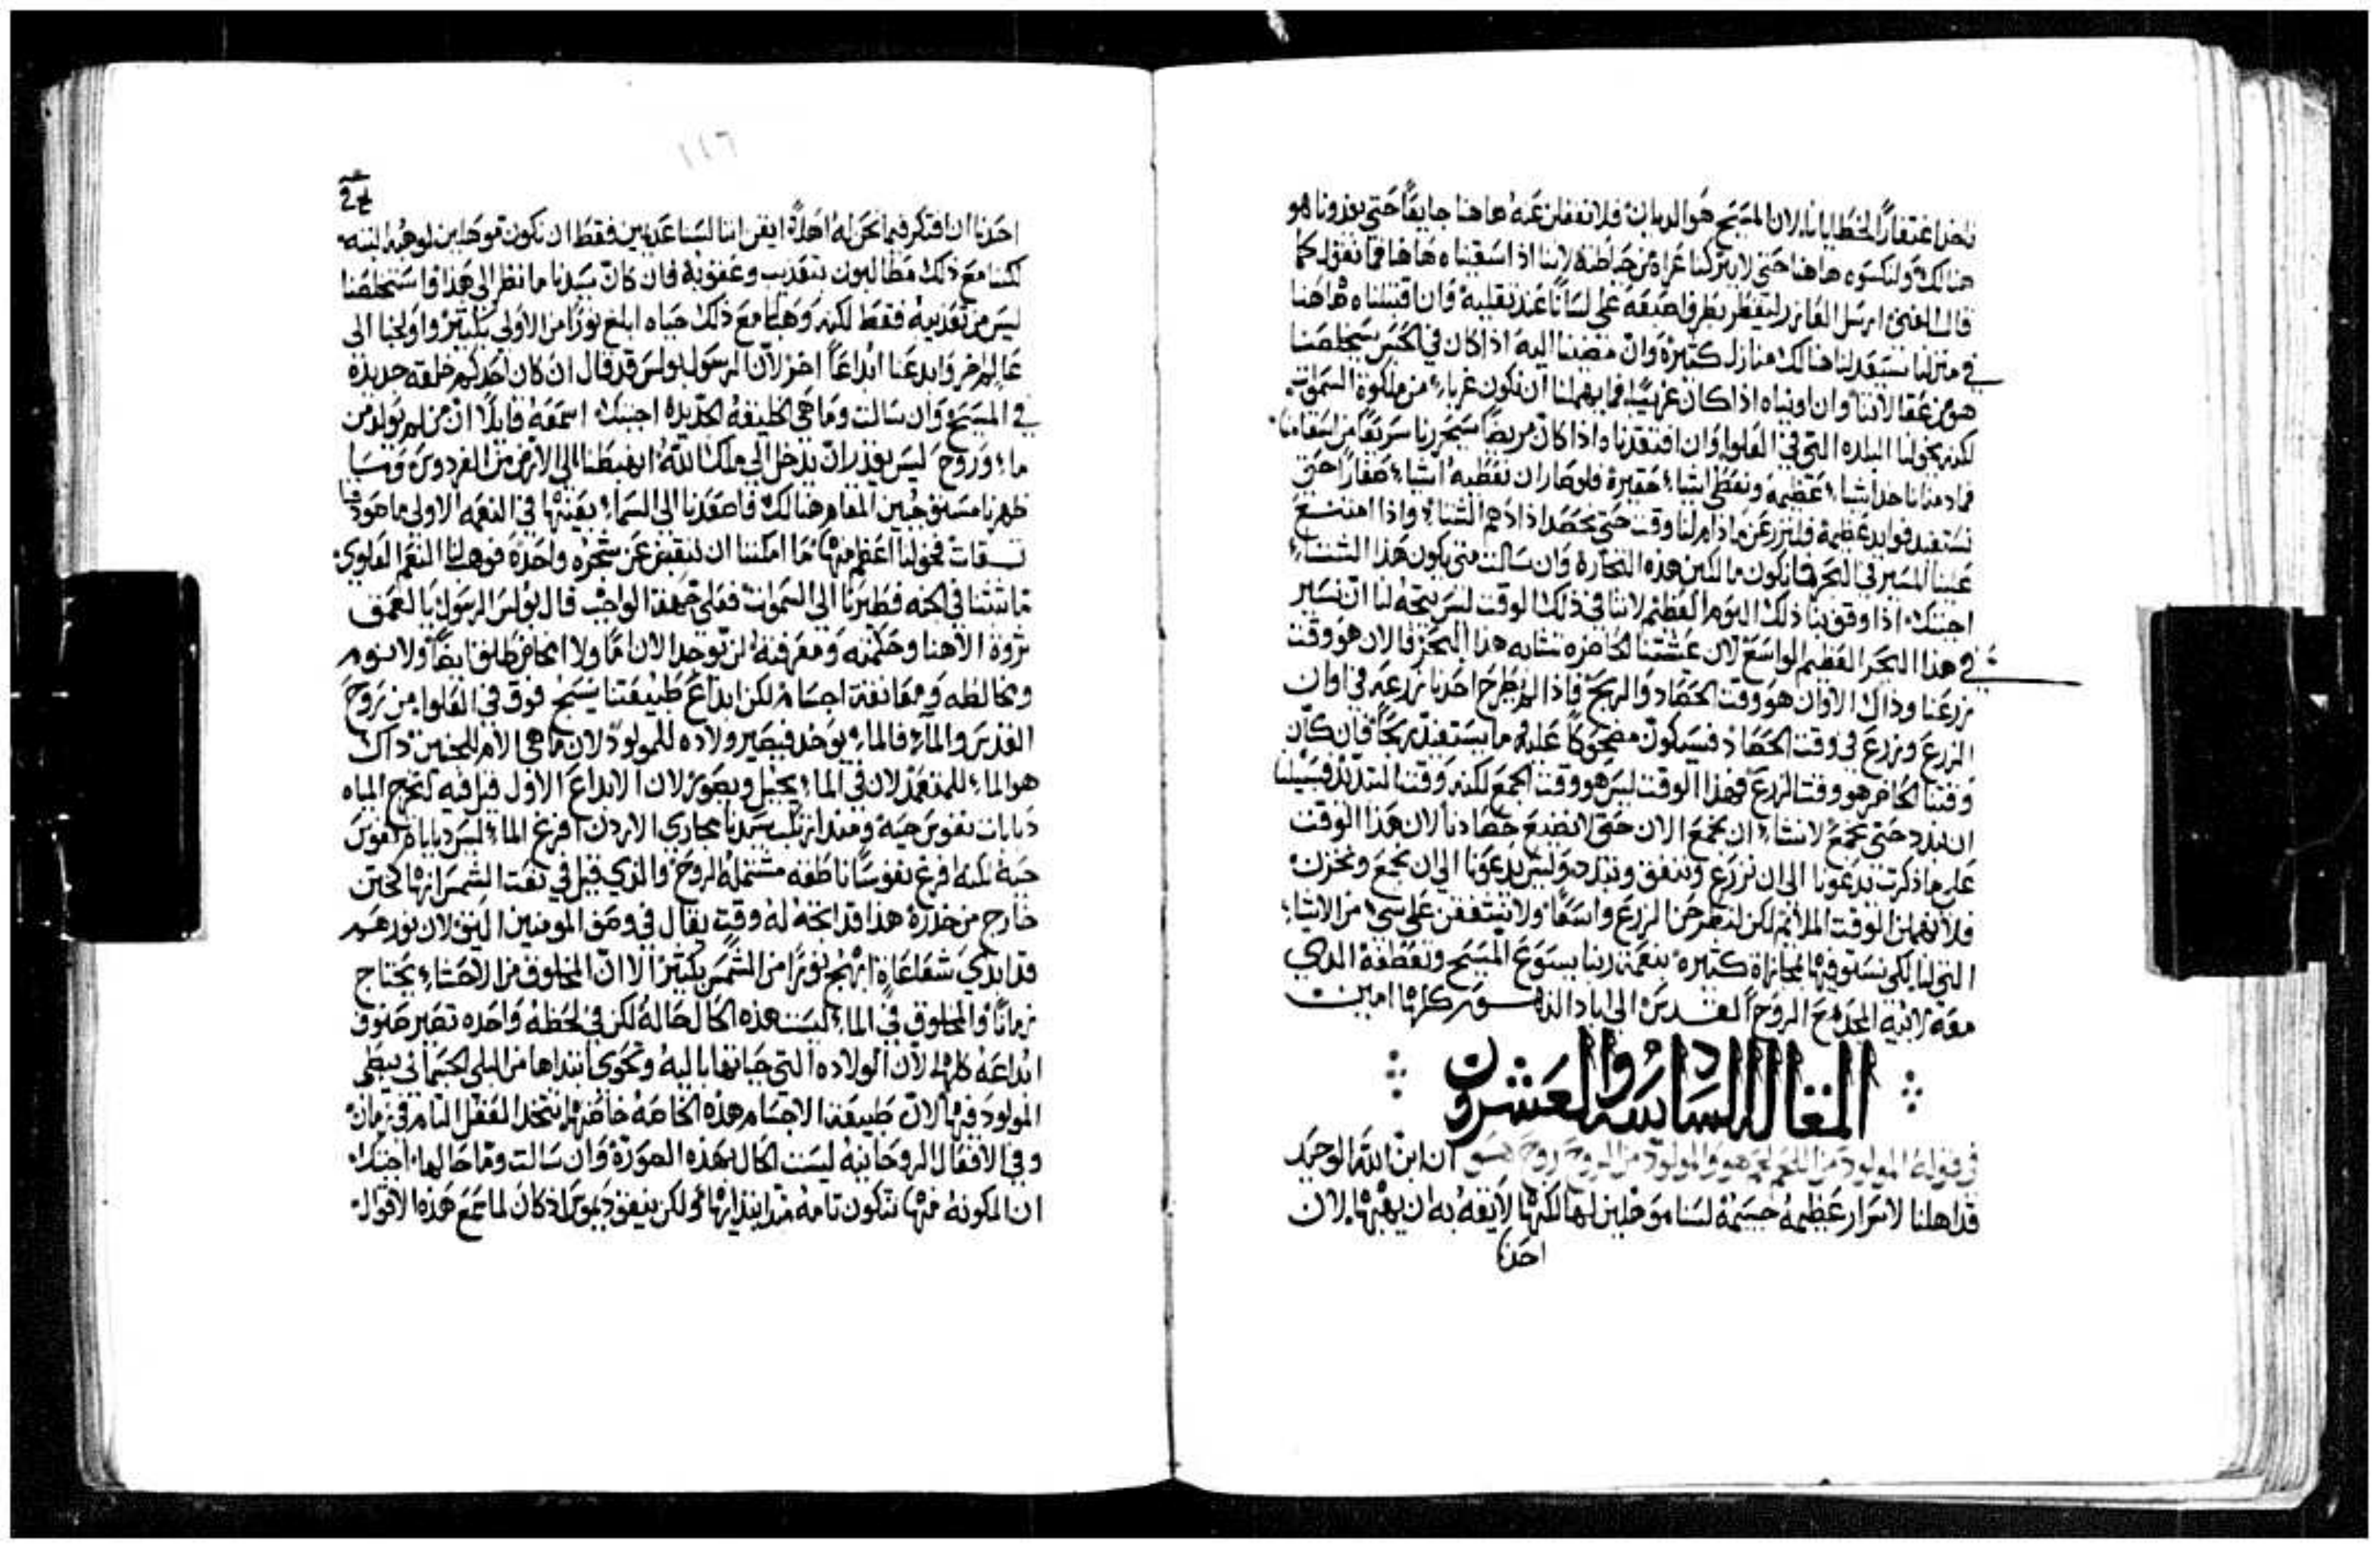 ناخذ اغتفارًا لخطايانا لان المسيح هو الديان فلا نغفلن عنه هاهنا جايعًا حتى يغدونا هو
هنالك ولنكسوه هاهنا حتى لا يتركنا عراة من حياطته لاننا اذا اسقيناه هاهنا فما نقول كما
قال الغني ارسل العازر ليقطر بطرف اصبعه على لساننا عند تقلبه وان اقتبلناه هاهنا
في منزلنا سيعد لنا هنالك منازل كثيرة وان مضينا اليه اذا كان في الحبس سيخلصنا
هو من عقالاتنا وان اويناه اذا كان غريبًا فما يهملنا ان نكون غرباء من ملكوة السموات
لكنه يخولنا البلده التي في العلوا وان افتقدناه اذا كان مريضًا سيحررنا سريعًا من اسقامنا
فاذ هذا ناخذ اشياء عظيمة ونعطي اشياء حقيرة فلو صار ان نعطيه اشياء صغارًا حتى
نستفيد فوايد عظيمة فلنزرعن ماذام لنا وقت حتى نحصد اذا دهم الشتاء واذا امتنع
عنا المسير في البحر فما نكون مالكين هذه التجارة وان سالت متى يكون هذا الشتاء
اجبتك اذا وقف بنا ذلك اليوم العظيم لاننا في ذلك الوقت ليس يتجه لنا ان نسير
في هذا البحر العظيم الواسع لان عيشتنا الحاضره تشابه هذا البحر فالان هو وقت
زرعنا وذاك الاوان هو وقت الحصاد والربح فاذا لم يطرح احدنا زرعه في اوان
الزرع ويزرع في وقت الحصاد فسيكون مضحوكًا عليه ما يستفيد ربحًا فان كان
وقتنا الحاضر هو وقت الزرع فهذا الوقت ليس هو وقت الجمع لكنه وقت التبديد فسبيلنا
ان نبدد حتى نجمع لا نشاء ان نجمع الان حتى لا نضيع حصادنا لان هذا الوقت
على ما ذكرت يدعونا الى ان نزرع وننفق ونبدد وليس يدعونا الى ان نجمع ونخزن
فلا نهملن الوقت الملائم لكن لنطرحن الزرع واسعًا ولا نشفقن على شيء من الاشياء
التي لنا لكي نستوفيها بمجازاة كثيره بنعمة ربنا يسوع المسيح وتعطفه الدي
معه لابيه المجد مع الروح القدس الى اباد الدهور كلها امين
المقالة السادسة والعشرون
في قوله المولود من اللحم لحم هو والمولود من الروح روح هو ان ابن الله الوحيد
قد اهلنا لاسرار عظيمة جسيمة لسنا موهلين لها لكنها لايقه به ان يهبها لان
احدنا
١١٦
احدنا ان افتكر فيما نحن له اهلاً ايقن اننا لسنا عديمين فقط ان نكون موهلين لموهبته
لكننا مع ذلك مطالبون بتعذيب وعقوبة فان كان سيدنا ما نظر الى هذا فما استخلصنا
ليس من تعذيبه فقط لكنه وهبنا مع ذلك حياه ابلغ نورًا من الاولى بكثير واولجنا الى
عالم اخر وابدعنا ابداعًا اخر لان الرسول بولس قد قال ان كان احدكم خلقة جديدة
في المسيح وان سالت وما هي الخليقة الجديدة اجبتك اسمعه قايلاً ان من لم يولد من
ماء وروح ليس يقدر ان يدخل الى ملك الله اهبطنا الى الارض من الفردوس
ظهرنا مستوجبين المقام هنالك فاصعدنا الى السماء بعينها في النعمة الاولى ما هو
ثقات فخولنا اعظم منها ما امكننا ان ننقبض عن شجره واحدة فوهب لنا النعم العلوي
ما ثبتنا في الجنه فطيرنا الى السموات فعلى جهة الواجب قال بولس الرسول يا لعمق
ثروة الاهنا وحكمته ومعرفته لن توجد الان اما ولا مخاض طلق ايضًا ولا نوم
ومخالطه ومعانقة اجسام لكن ابداع طبيعتنا ينسج فوق في العلوا من روح
القدس والماء فالماء يوخذ فيصير ولاده للمولود لان ما هي الام للجنين ذاك
هو الماء للمتعمد لان في الماء يجبل ويصور لان الابداع الاول قيل فيه لتخرج المياه
دبابات نفوس حيه ومنذ نزل سيدنا مجاري الاردن افرغ الماء ليس دبابات نفوس
حية لكنه افرغ نفوسًا ناطقه مشتمله الروح والذي قيل في نعت الشمس انها كختن
خارج من خدرة هذا قد اتجه له وقت يقال في وصف المومنين اليق لان نورهم
قد ابدى شعاعًا ابهج نورًا من الشمس بكثير الا ان المخلوق من الاحشاء يحتاج
زمانًا والمخلوق في الماء ليست هذه الحال حالة لكن في لحظة واحده تصير صنوف
ابداعه كلها لان الولاده التي حياتها باليه وتحوي ابتداها من البلى الجسماني يبطي
المولود فيها لان طبيعة الاجسام هذه الخاصة خاصتها تتخذ الفعل التام في زمان
وفي الافعال الروحانية ليست الحال بهذه الصورة وان سالت وما حالها اجبتك
ان المكونة فيها تتكون تامة منذ ابتدايها ولكن نيقوديموس اذ كان لما سمع هذه الاقوال